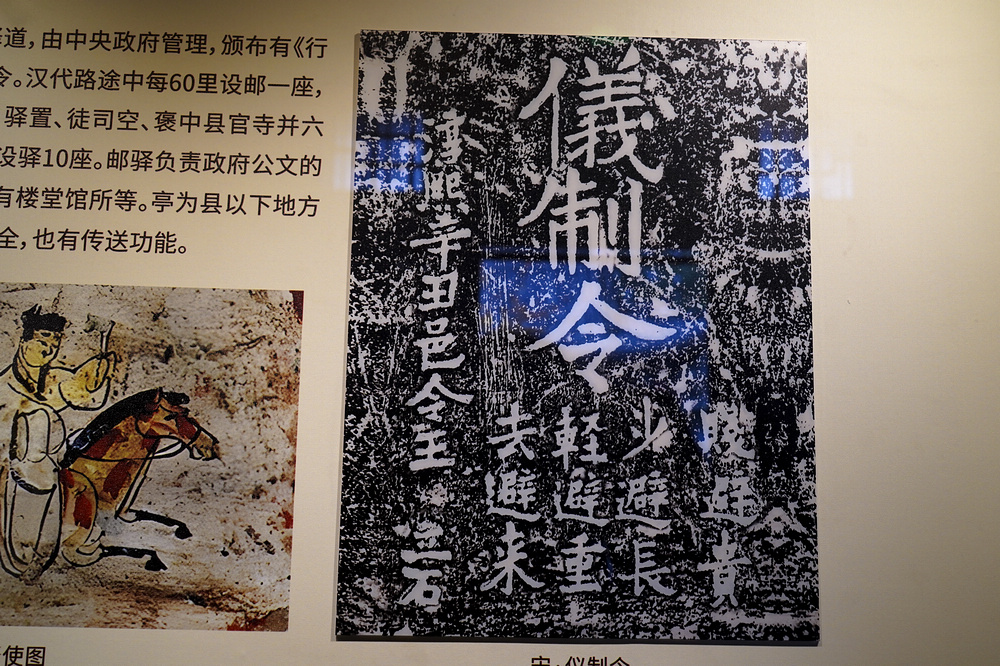 道，由中央政府管理，颁布有《行
令。汉代路途中每60里设邮一座，
驿置、徒司空、褒中县官寺并六
设驿10座。邮驿负责政府公文的
有楼堂馆所等。亭为县以下地方
全，也有传送功能。
儀制令
賤避貴
少避長
軽避重
去避来
淳熙辛丑邑令王
立石
使图
宋·仪制令